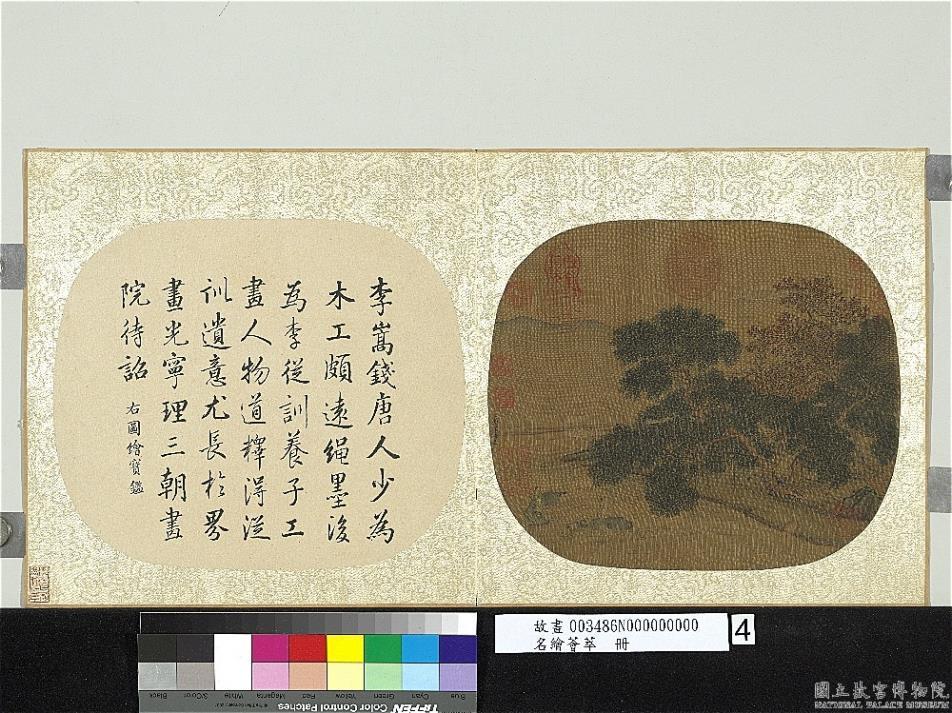 李嵩錢唐人少為
木工頗遠繩墨後
為李從訓養子工
畫人物道釋得從
訓遺意尤長於界
畫光寧理三朝畫
院待詔 右圖繪寶鑑
故畫 003486N000000000
名繪薈萃 冊
4
Black 3/Color White Magenta Red Yellow Green Cyan Blue
TIFFEN Color Control Patches
國立故宮博物院
NATIONAL PALACE MUSEUM